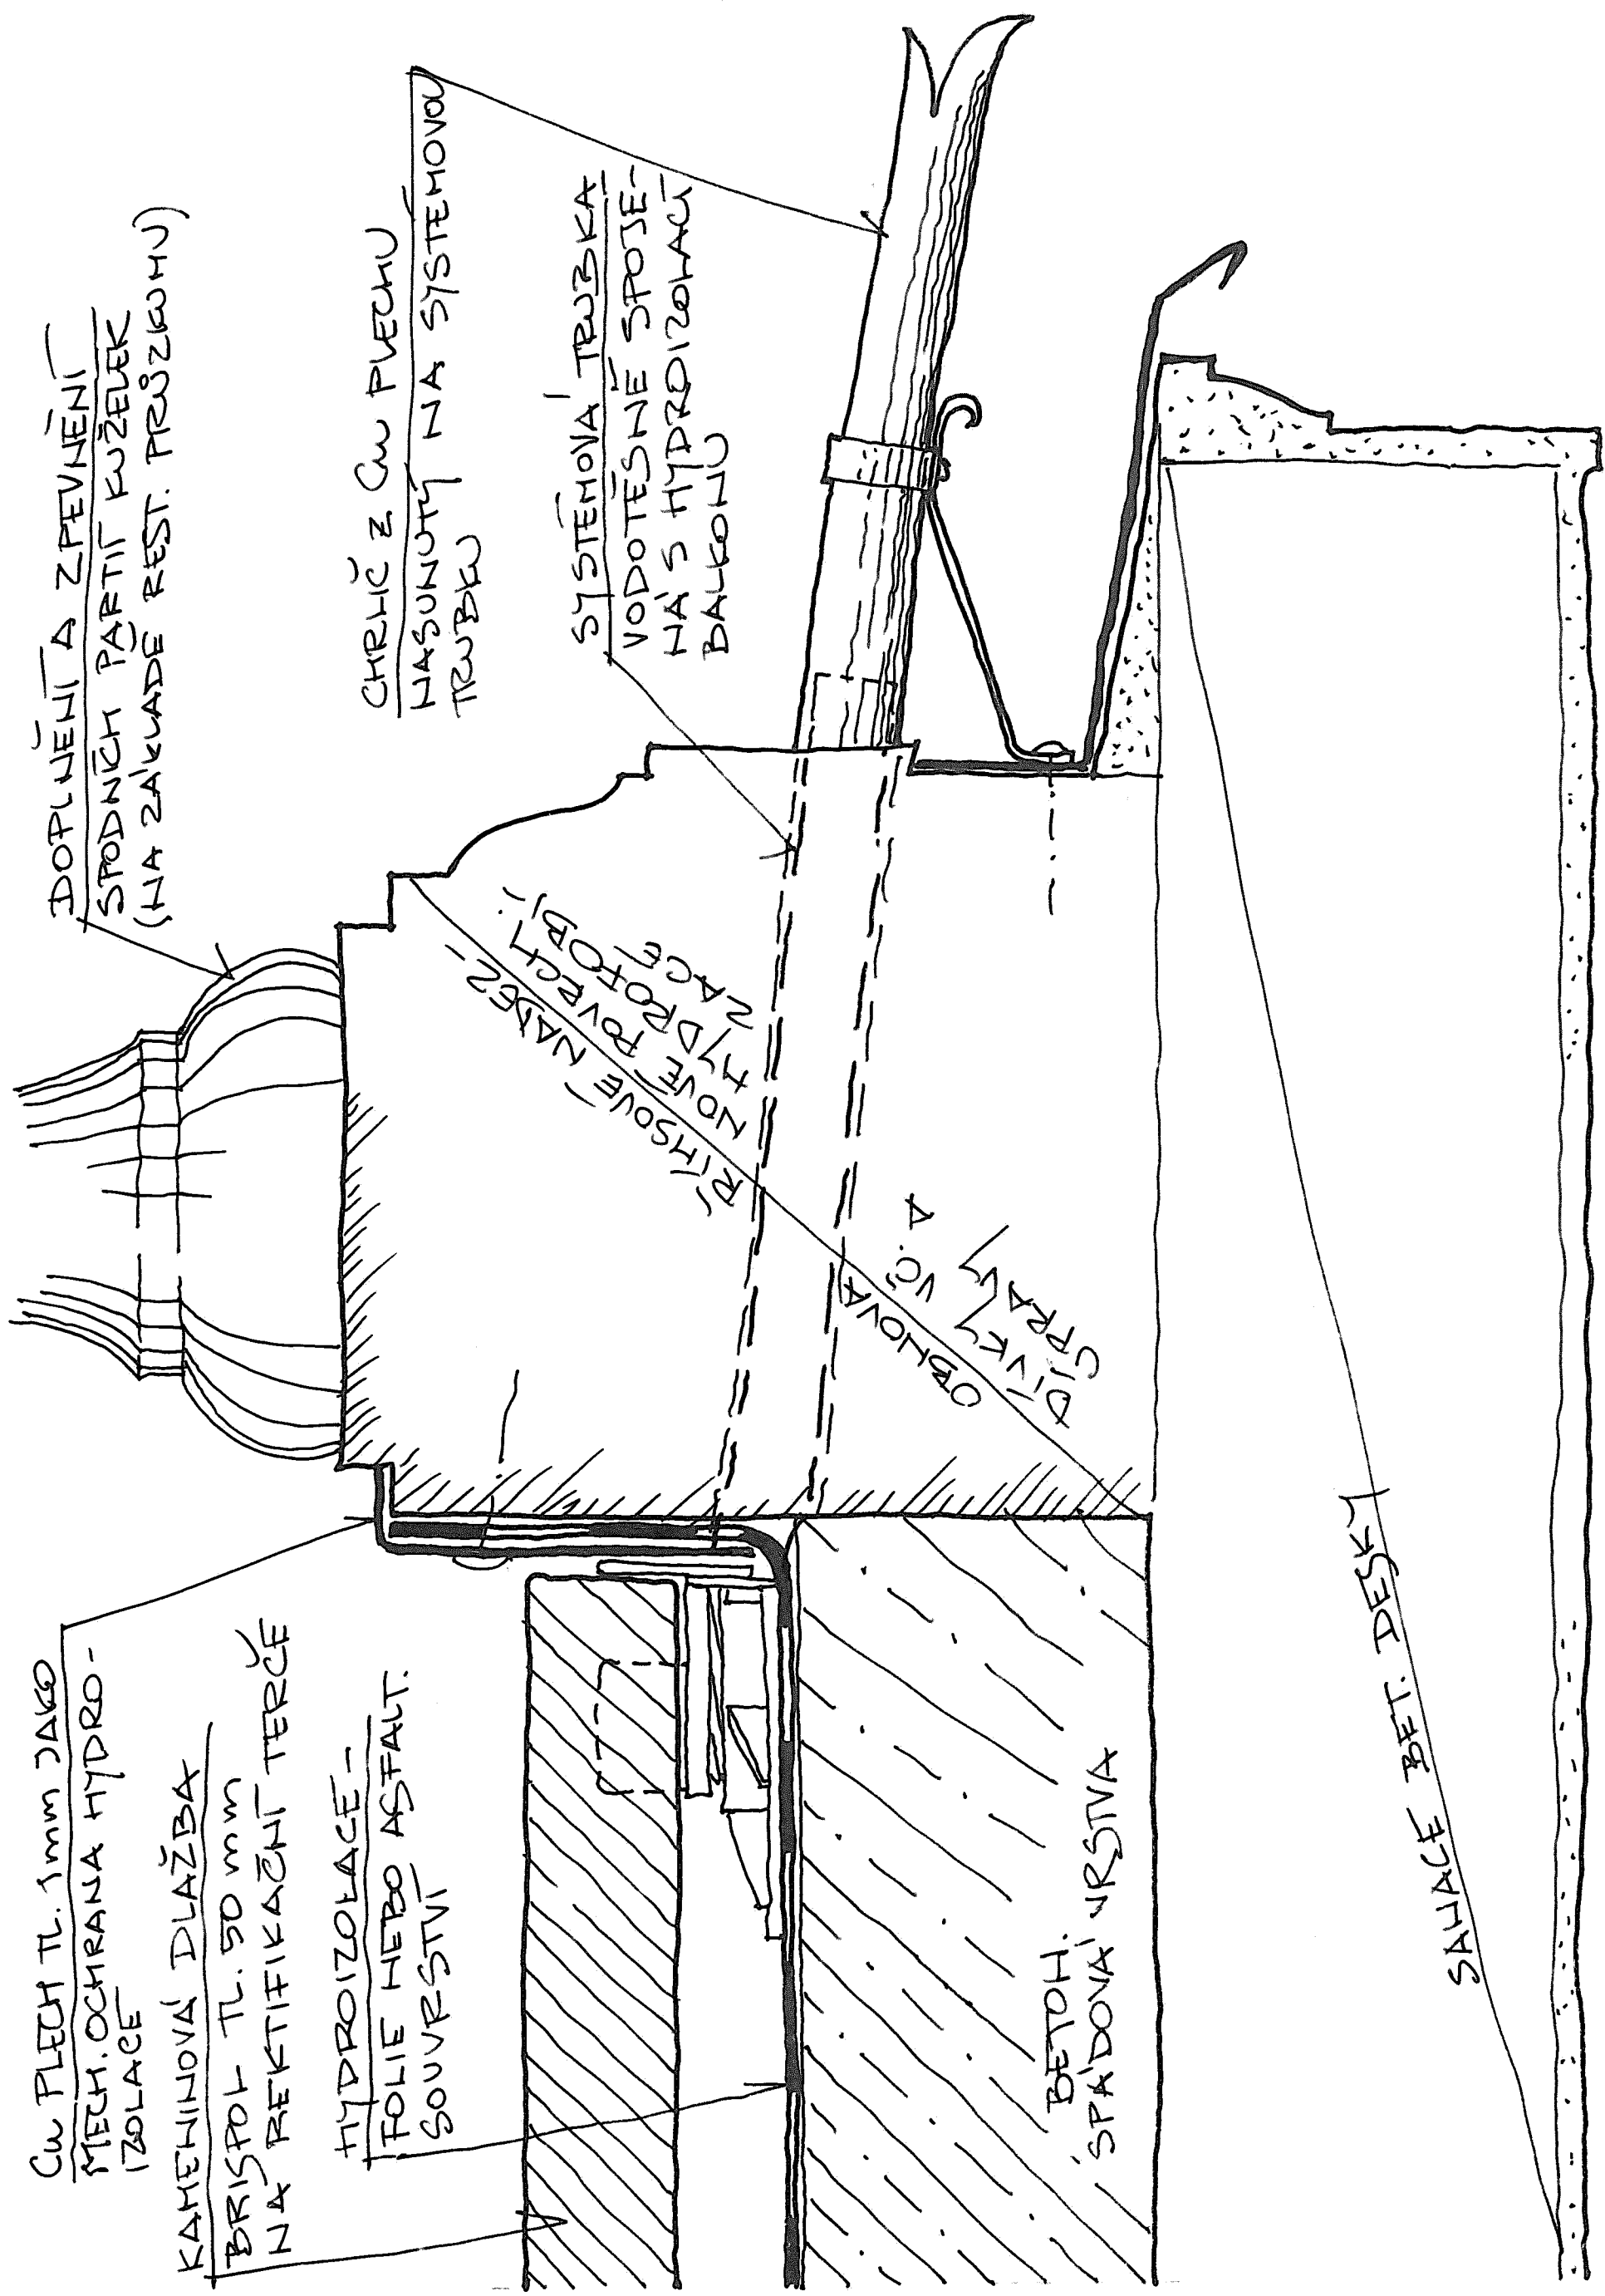 Cu PLECH TL. 1mm JAKO
MECH. OCHRANA HYDRO-
IZOLACE
KAMENINOVÁ DLAŽBA
BRISPOL TL. 50 mm
NA REKTIFIKAČNÍ TERČE
HYDROIZOLACE -
FOLIE NEBO ASFALT.
SOUVRSTVÍ
DOPLNĚNÍ A ZPEVNĚNÍ
SPODNÍCH PARTIÍ KUŽELEK
(NA ZÁKLADĚ REST. PRŮZKUMU)
CHRLIČ Z Cu PLECHU
NASUNUTÝ NA SYSTÉMOVOU
TRUBKU
SYSTÉMOVÁ TRUBKA
VODOTĚSNĚ SPOJE-
NÁ S HYDROIZOLACÍ
BALKONU
OBNOVA ŘÍMSOVÉ NADEZ-
DÍVKY VČ. NOVÉ POVRCH.
ÚPRAVY A HYDROFOBI-
ZACE
BETON.
SPÁDOVÁ VRSTVA
SANACE BET. DESKY